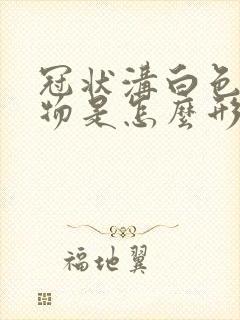 冠状溝白色
物是怎麼形
福地翼